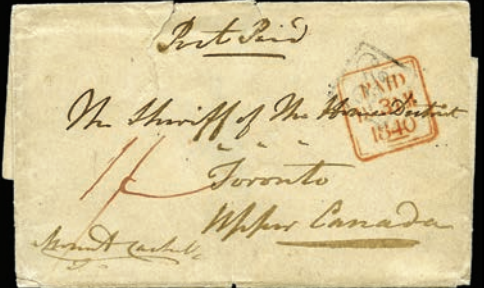 Post Paid
PAID
1840
The Sheriff of The Home District
" " "
1/
Toronto
Upper Canada
Mount Cashell